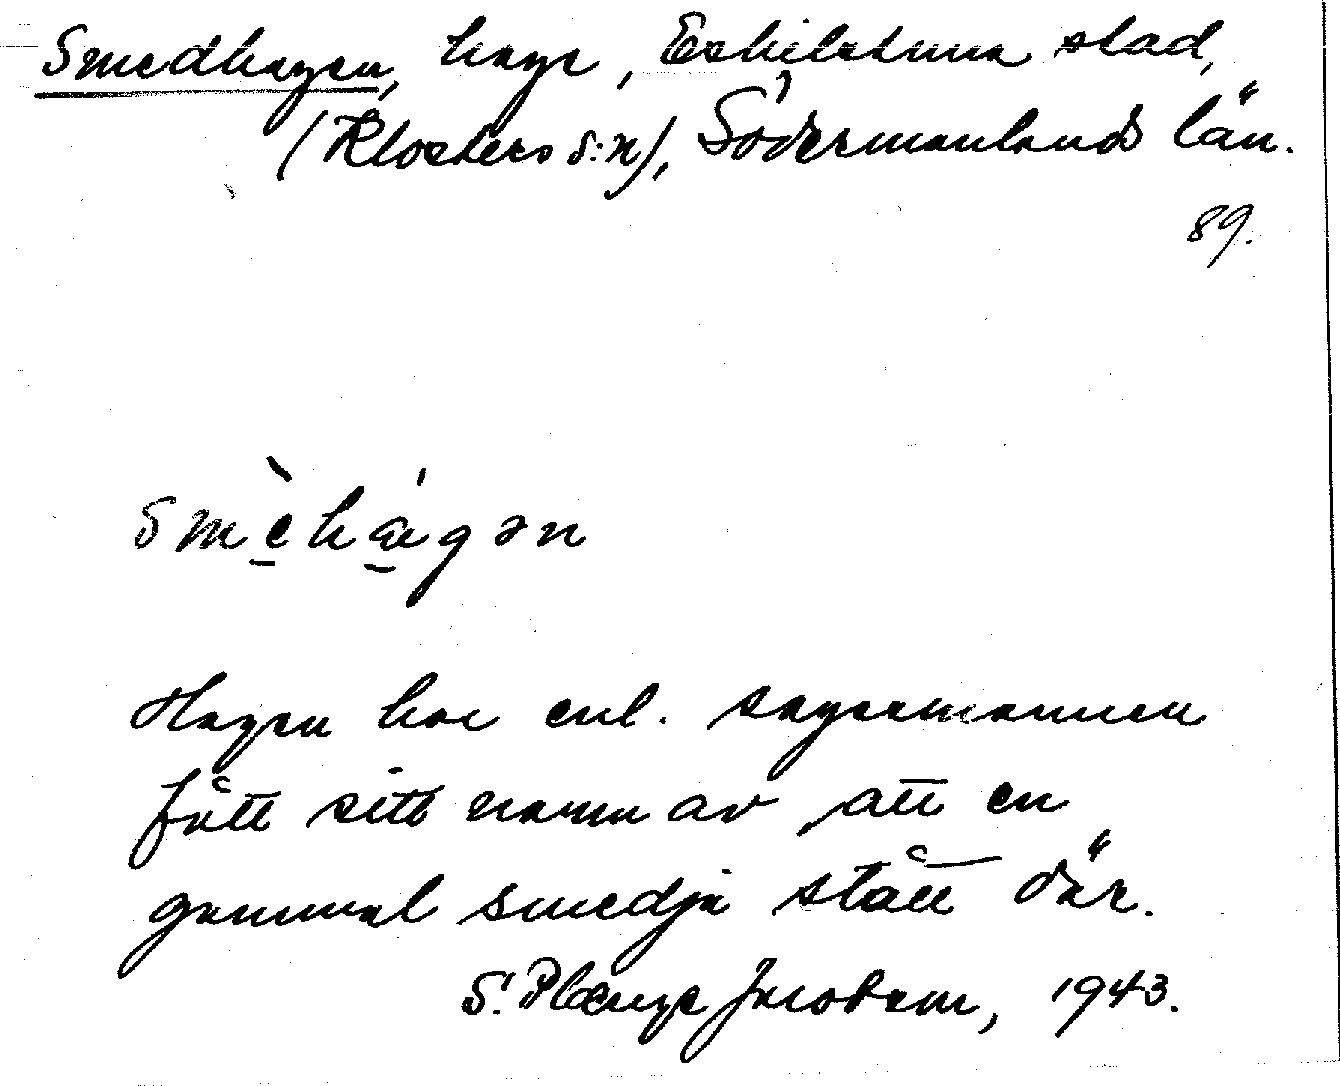 Smedhagen, hage, Eskilstuna stad,
(Klosters s:n), Södermanlands län.
89.
smèhágən
Hagen har enl. sagesmannen
fått sitt namn av, att en
gammal smedja stått där.
S. Plænge Jacobson, 1943.